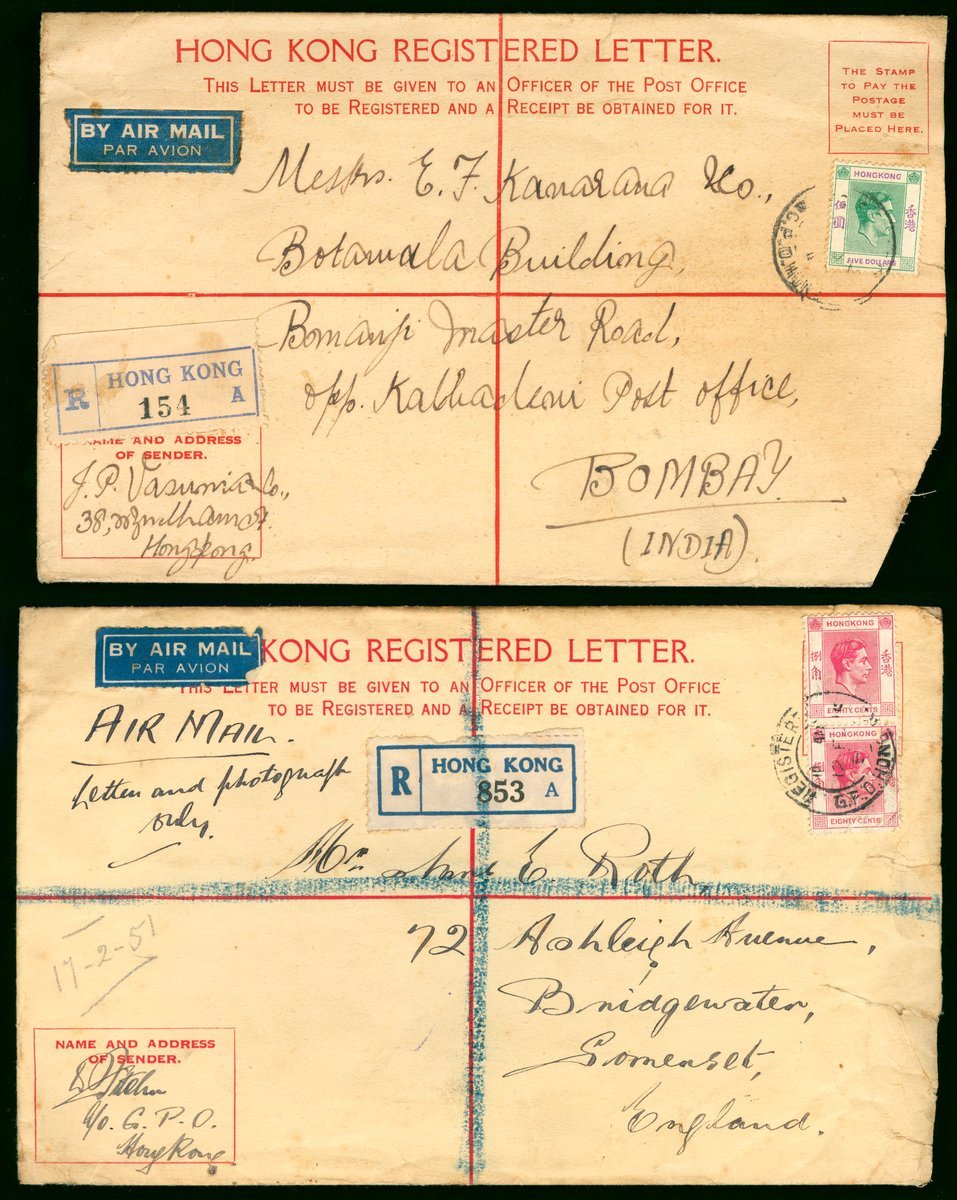 HONG KONG REGISTERED LETTER.
THIS LETTER MUST BE GIVEN TO AN OFFICER OF THE POST OFFICE
TO BE REGISTERED AND A RECEIPT BE OBTAINED FOR IT.
THE STAMP
TO PAY THE
POSTAGE
MUST BE
PLACED HERE.
BY AIR MAIL
PAR AVION
HONGKONG
伍圓
香港
FIVE DOLLARS
Messrs. E. F. Kanarana & Co.,
Botawala Building,
Bomanji Master Road,
opp. Kalbadevi Post office,
BOMBAY.
(INDIA).
R HONG KONG
154 A
NAME AND ADDRESS
OF SENDER.
J. P. Vasunia & Co.,
38, Wyndham St.
Hongkong.
BY AIR MAIL
PAR AVION
KONG REGISTERED LETTER.
THIS LETTER MUST BE GIVEN TO AN OFFICER OF THE POST OFFICE
TO BE REGISTERED AND A RECEIPT BE OBTAINED FOR IT.
HONGKONG
捌角
香港
EIGHTY CENTS
HONGKONG
EIGHTY CENTS
REGISTERED
G.P.O. HONG
AIR MAIL.
Letter and photograph
only.
R HONG KONG
853 A
E. Roth,
72 Ashleigh Avenue,
Bridgewater,
Somerset,
England.
17-2-51
NAME AND ADDRESS
OF SENDER.
c/o. G. P. O.
Hong Kong